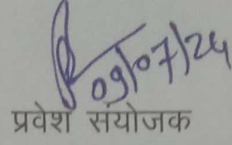 09/07/24
प्रवेश संयोजक